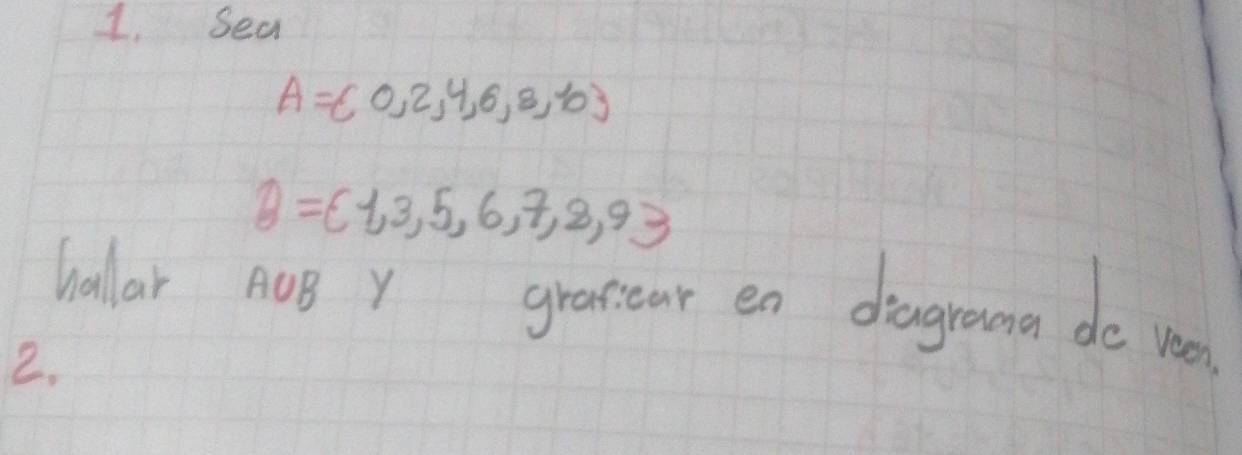 1. Sea
A={0,2,4,6,8,10}
B={1,3,5,6,7,8,9}
hallar AUB y graficar en diagrama de veen.
2.